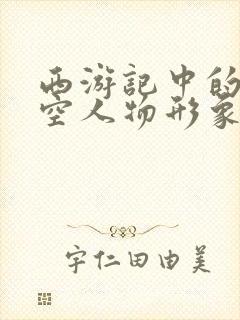 西游記中的
空人物形象
宇仁田由美